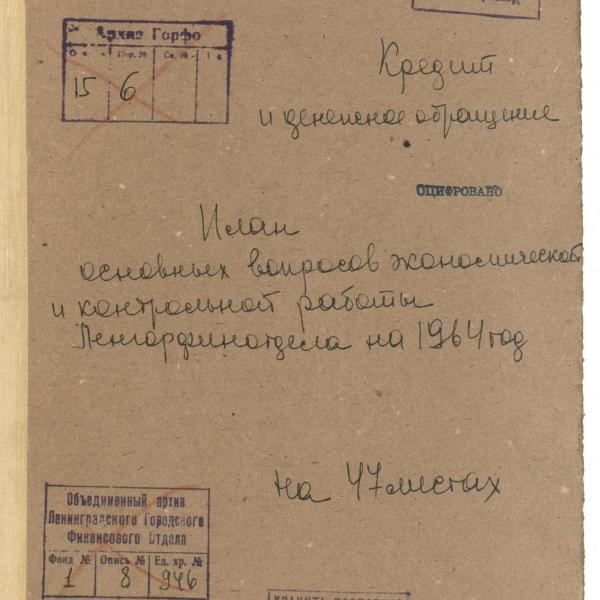 Архив Горфо
Пор. №
Св. №
15 6
Кредит
и денежное обращение
ОЦИФРОВАНО
План
основных вопросов экономической
и контрольной работы
Ленгорфинотдела на 1964 год
на 47 листах
Объединенный архив
Ленинградского Городского
Финансового Отдела
Фонд № Опись № Ед. хр. №
1 8 946